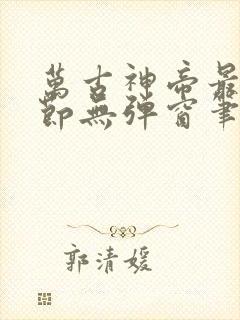 萬古神帝最
節無彈窗筆
郭清媛